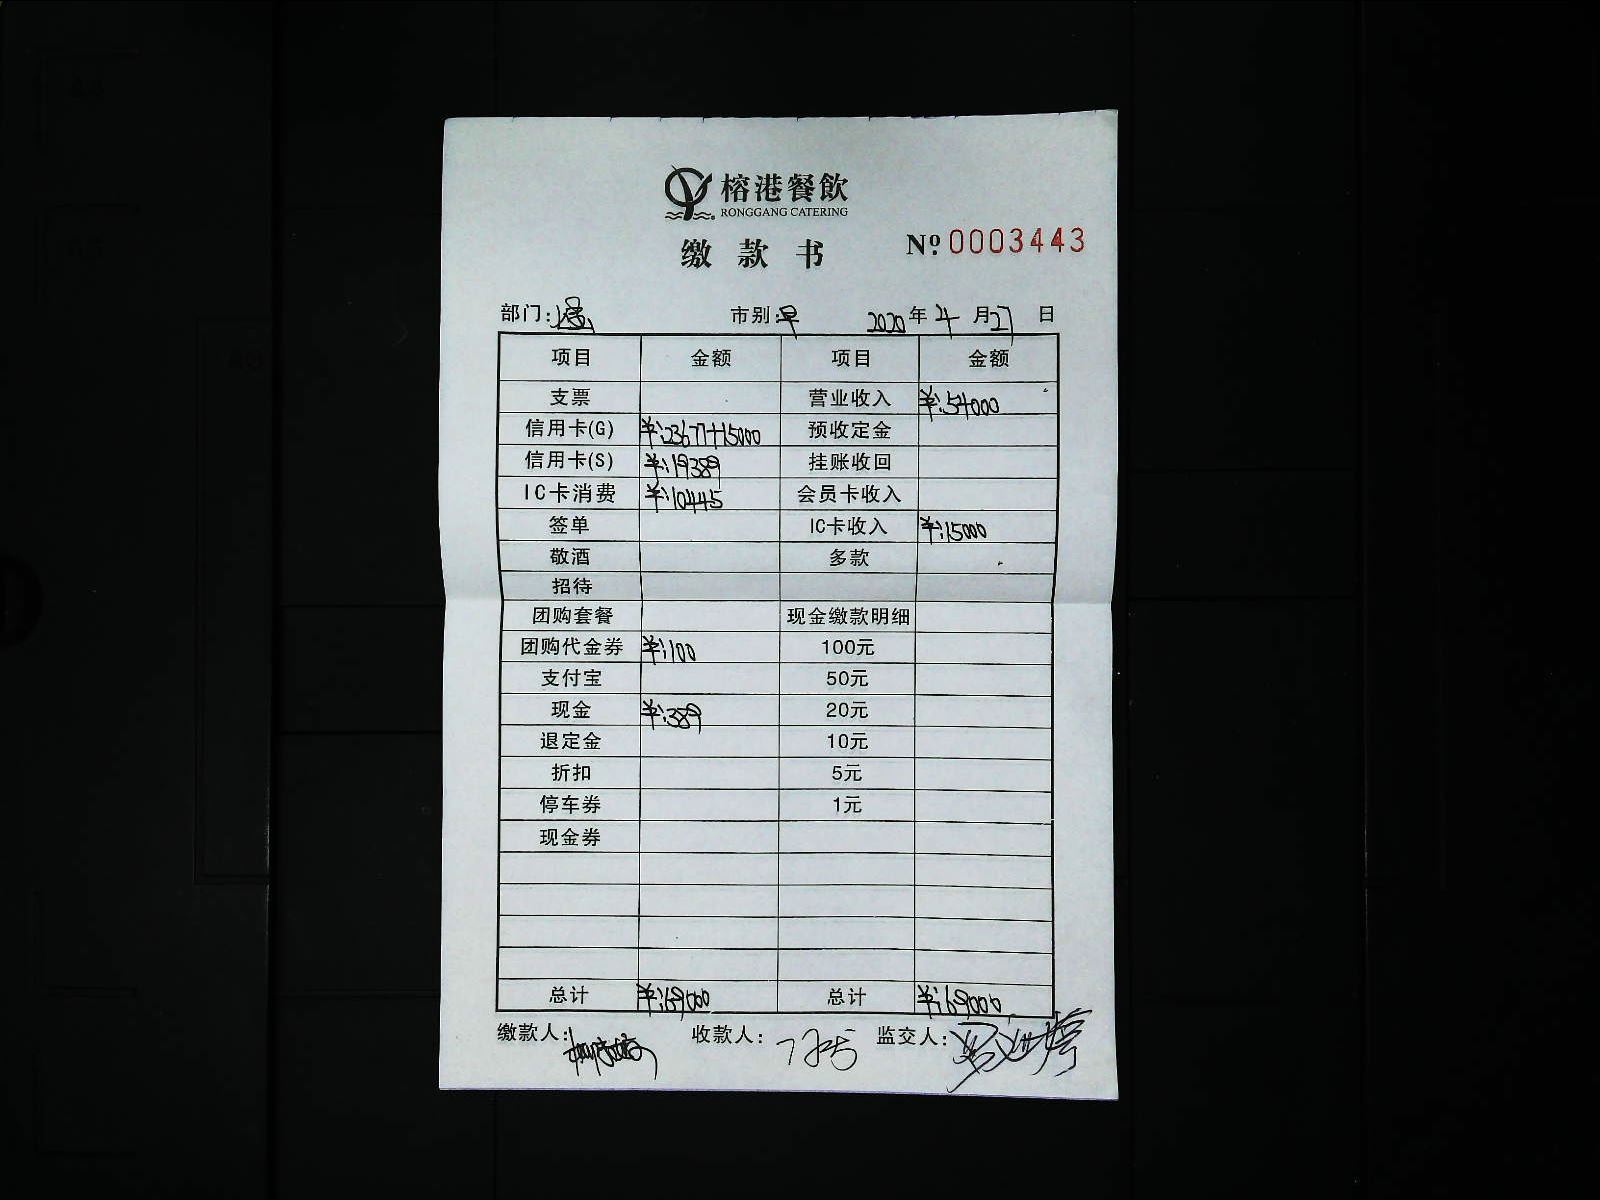 榕港餐飲
RONGGANG CATERING
缴款书 Nº 0003443
部门: 市别:早 2020年4月27日
项目 金额 项目 金额
支票 营业收入 ¥:54000
信用卡(G) ¥:23677+15000 预收定金
信用卡(S) ¥:19389 挂账收回
IC卡消费 ¥:10445 会员卡收入
签单 IC卡收入 ¥:15000
敬酒 多款
招待
团购套餐 现金缴款明细
团购代金券 ¥:100 100元
支付宝 50元
现金 ¥:389 20元
退定金 10元
折扣 5元
停车券 1元
现金券
总计 ¥:69000 总计 ¥:69000
缴款人: 收款人: 监交人: